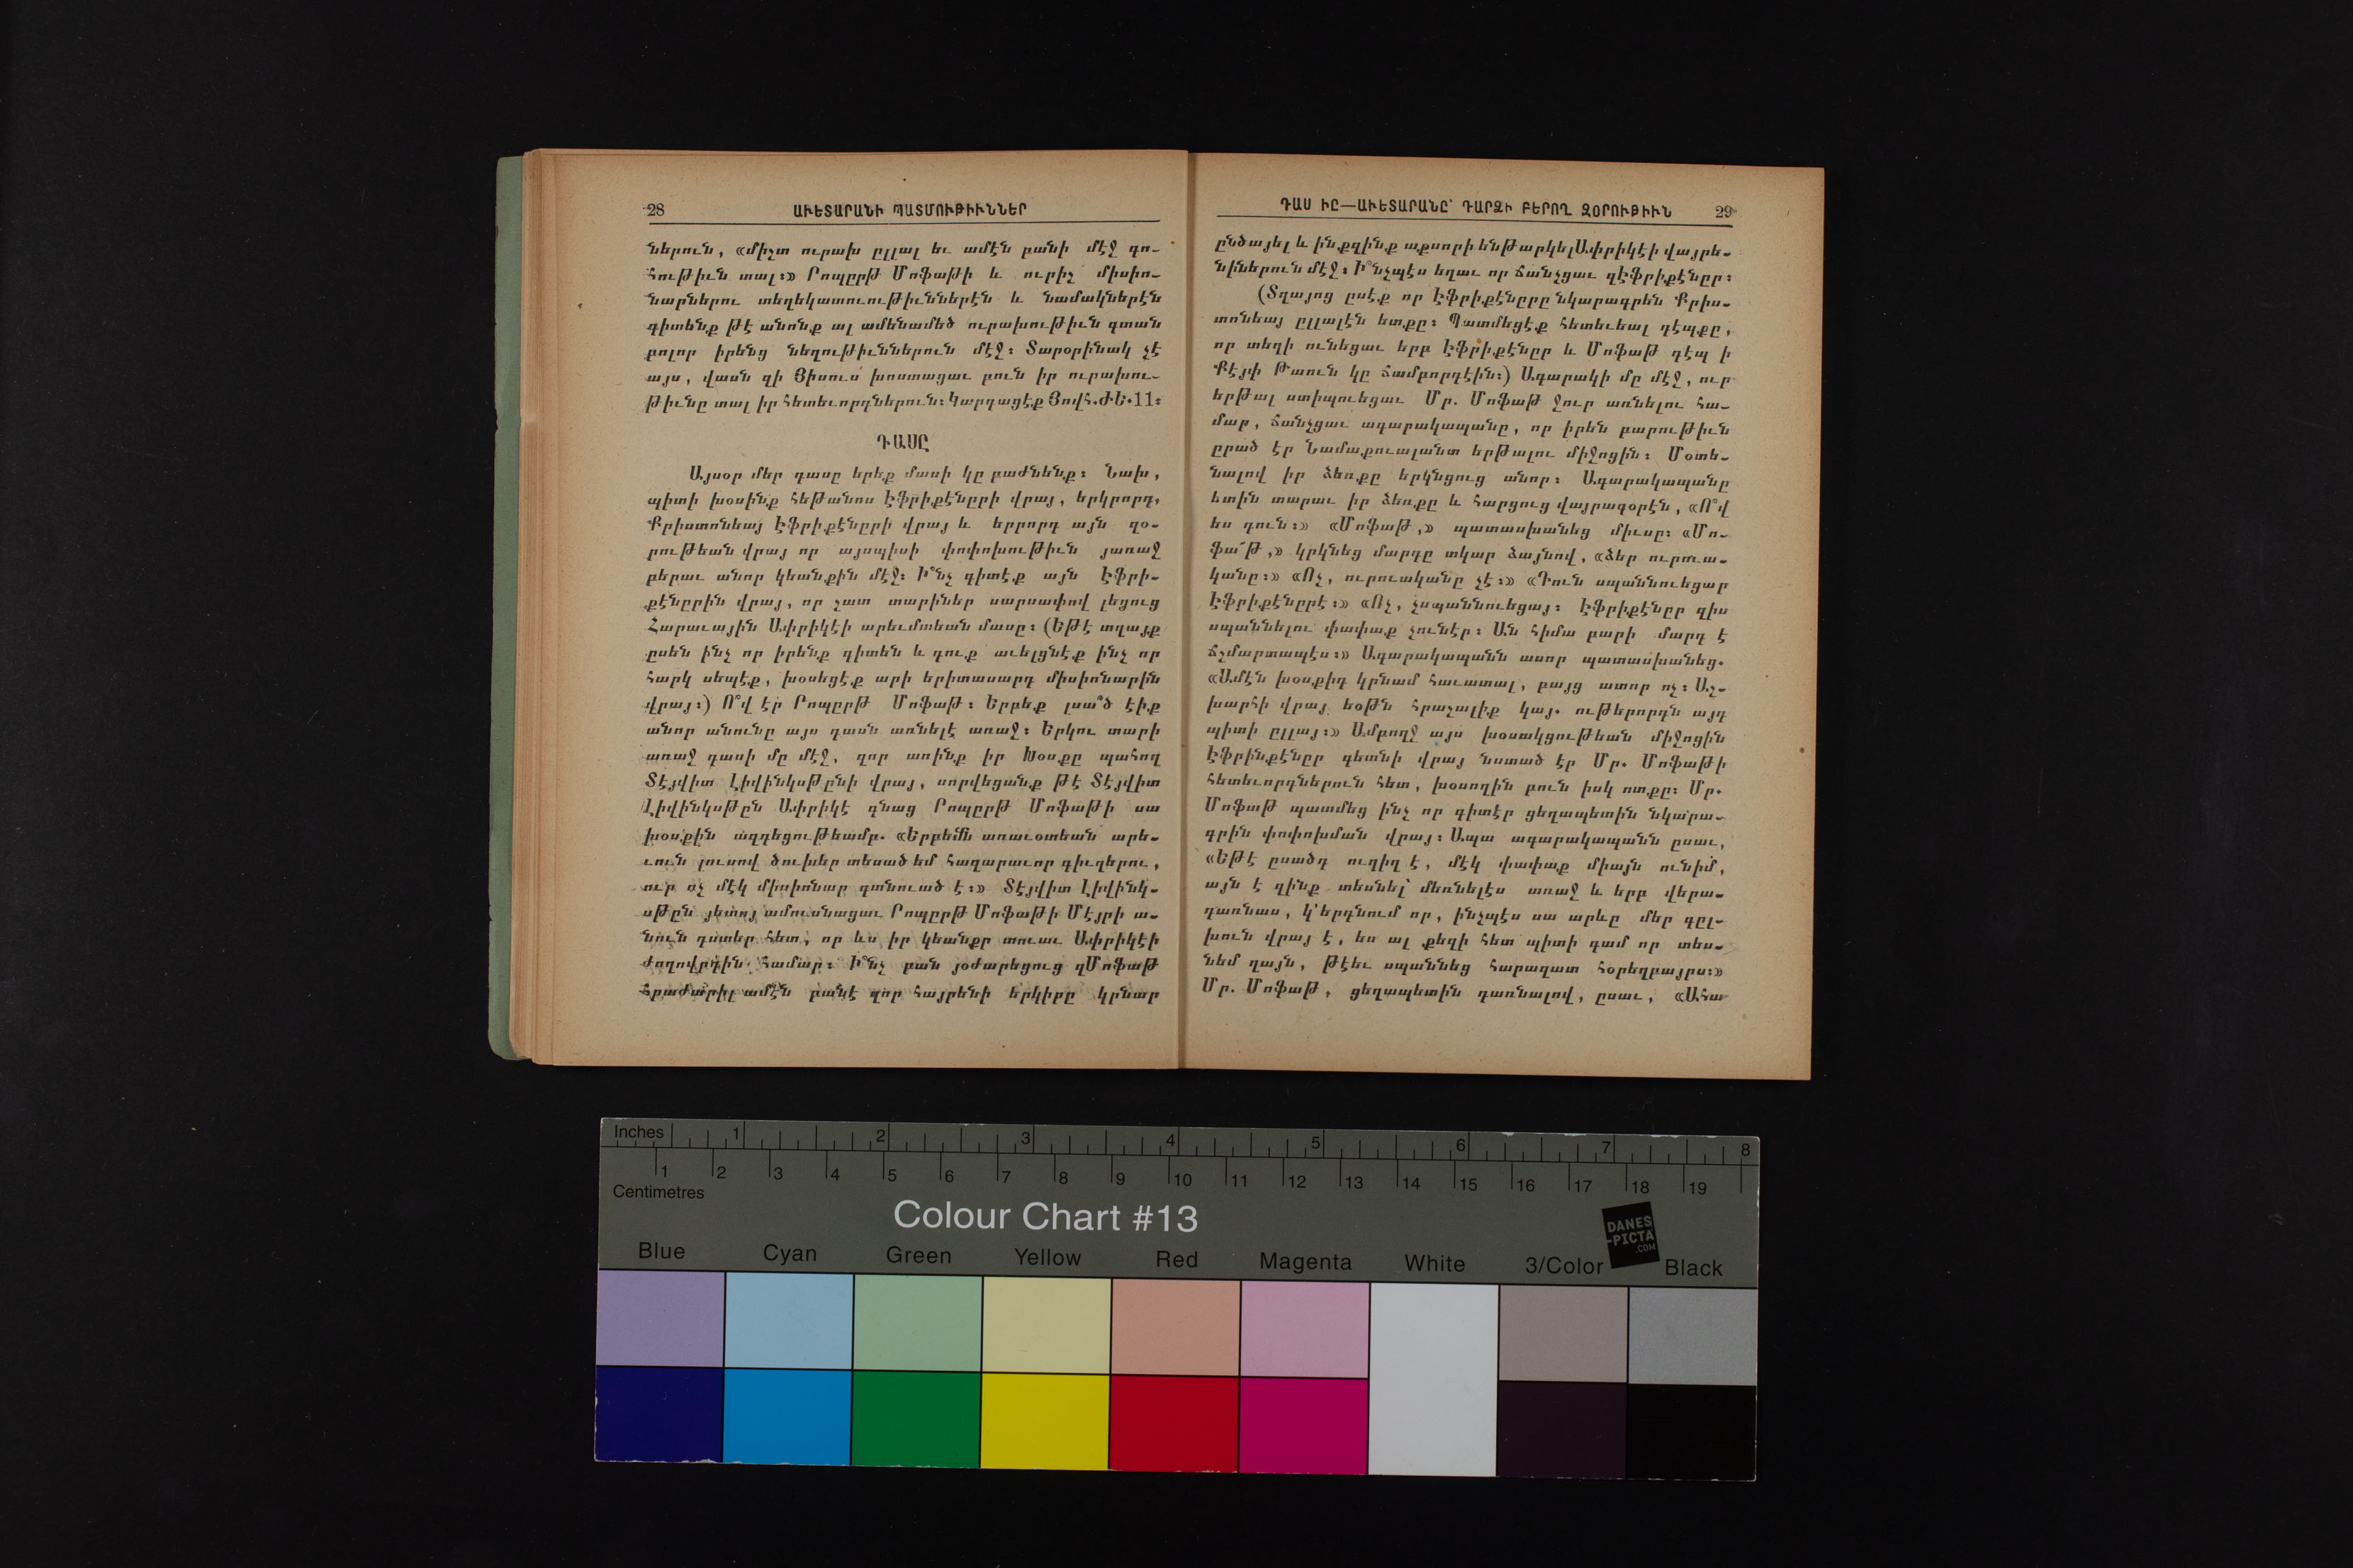 28 ԱՒԵՏԱՐԱՆԻ ՊԱՏՄՈՒԹԻՒՆՆԵՐ
ներուն, «միշտ ուրախ ըլլալ եւ ամէն բանի մէջ գո-
հութիւն տալ։» Րոպըրթ Մոֆաթի և ուրիշ միսիո-
նարներու տեղեկատուութիւններէն և նամակներէն
գիտենք թէ անոնք ալ ամենամեծ ուրախութիւն գտան
բոլոր իրենց նեղութիւններուն մէջ։ Տարօրինակ չէ
այս, վասն զի Յիսուս խոստացաւ բուն իր ուրախու-
թիւնը տալ իր հետեւորդներուն։ Կարդացէք Յովհ.ԺԵ.11։
ԴԱՍԸ
Այսօր մեր դասը երեք մասի կը բաժնենք։ Նախ,
պիտի խօսինք հեթանոս Էֆրիքէնըրի վրայ, երկրորդ,
Քրիստոնեայ Էֆրիքէնըրի վրայ և երրորդ այն զօ-
րութեան վրայ որ այսպիսի փոփոխութիւն յառաջ
բերաւ անոր կեանքին մէջ։ Ի՞նչ գիտէք այն Էֆրի-
քէնըրին վրայ, որ շատ տարիներ սարսափով լեցուց
Հարաւային Ափրիկէի արեւմտեան մասը։ (Եթէ տղայք
ըսեն ինչ որ իրենք գիտեն և դուք աւելցնէք ինչ որ
հարկ սեպէք, խօսեցէք արի երիտասարդ միսիոնարին
վրայ։) Ո՞վ էր Րոպըրթ Մոֆաթ։ Երբեք լսա՞ծ էիք
անոր անունը այս դասն առնելէ առաջ։ Երկու տարի
առաջ դասի մը մէջ, զոր առինք իր Խօսքը պահող
Տէյվիտ Լիվինկսթընի վրայ, սորվեցանք թէ Տէյվիտ
Լիվինկսթըն Ափրիկէ գնաց Րոպըրթ Մոֆաթի սա
խօսքին ազդեցութեամբ. «Երբեմն առաւօտեան արե-
ւուն լուսով ծուխեր տեսած եմ հազարաւոր գիւղերու,
ուր ոչ մէկ միսիոնար գտնուած է։» Տէյվիտ Լիվինկ-
սթըն յետոյ ամուսնացաւ Րոպըրթ Մոֆաթի Մէյրի ա-
նուն դստեր հետ, որ ևս իր կեանքը տուաւ Ափրիկէի
ժողովրդին համար։ Ի՞նչ բան յօժարեցուց զՄոֆաթ
հրաժարիլ ամէն բանէ զոր հայրենի երկիրը կրնար
ԴԱՍ ԻԸ—ԱՒԵՏԱՐԱՆԸ՝ ԴԱՐՁԻ ԲԵՐՈՂ ԶՕՐՈՒԹԻՒՆ 29
ընծայել և ինքզինք աքսորի ենթարկել Ափրիկէի վայրե-
նիներուն մէջ։ Ի՞նչպէս եղաւ որ ճանչցաւ զԷֆրիքէնըր։
(Տղայոց ըսէք որ Էֆրիքէնըրը նկարագրեն Քրիս-
տոնեայ ըլլալէն ետքը։ Պատմեցէք հետեւեալ դէպքը,
որ տեղի ունեցաւ երբ Էֆրիքէնըր և Մոֆաթ դէպ ի
Քէյփ Թաուն կը ճամբորդէին։) Ագարակի մը մէջ, ուր
երթալ ստիպուեցաւ Մր. Մոֆաթ ջուր առնելու հա-
մար, ճանչցաւ ագարակապանը, որ իրեն բարութիւն
ըրած էր Նամաքուալանտ երթալու միջոցին։ Մօտե-
նալով իր ձեռքը երկնցուց անոր։ Ագարակապանը
ետին տարաւ իր ձեռքը և հարցուց վայրագօրէն, «Ո՞վ
ես դուն։» «Մոֆաթ,» պատասխանեց միւսը։ «Մո-
ֆա՜թ,» կրկնեց մարդը տկար ձայնով, «ձեր ուրուա-
կանը։» «Ոչ, ուրուականը չէ։» «Դուն սպաննուեցար
Էֆրիքէնըրէ։» «Ոչ, չսպաննուեցայ։ Էֆրիքէնըր զիս
սպաննելու փափաք չունէր։ Ան հիմա բարի մարդ է
ճշմարտապէս։» Ագարակապանն ասոր պատասխանեց.
«Ամէն խօսքիդ կրնամ հաւատալ, բայց ատոր ոչ։ Աշ-
խարհի վրայ եօթն հրաշալիք կայ. ութերորդն այդ
պիտի ըլլայ։» Ամբողջ այս խօսակցութեան միջոցին
Էֆրինքէնըր գետնի վրայ նստած էր Մր. Մոֆաթի
հետեւորդներուն հետ, խօսողին բուն իսկ ոտքը։ Մր.
Մոֆաթ պատմեց ինչ որ գիտէր ցեղապետին նկարա-
գրին փոփոխման վրայ։ Ապա ագարակապանն ըսաւ,
«Եթէ ըսածդ ուղիղ է, մէկ փափաք միայն ունիմ,
այն է զինք տեսնել՝ մեռնելէս առաջ և երբ վերա-
դառնաս, կ՚երդնում որ, ինչպէս սա արևը մեր գըլ-
խուն վրայ է, ես ալ քեզի հետ պիտի գամ որ տես-
նեմ զայն, թէեւ սպաննեց հարազատ հօրեղբայրս։»
Մր. Մոֆաթ, ցեղապետին դառնալով, ըսաւ, «Ահա
Inches 1 2 3 4 5 6 7 8
1 2 3 4 5 6 7 8 9 10 11 12 13 14 15 16 17 18 19
Centimetres
Colour Chart #13
DANES
-PICTA
.COM
Blue Cyan Green Yellow Red Magenta White 3/Color Black